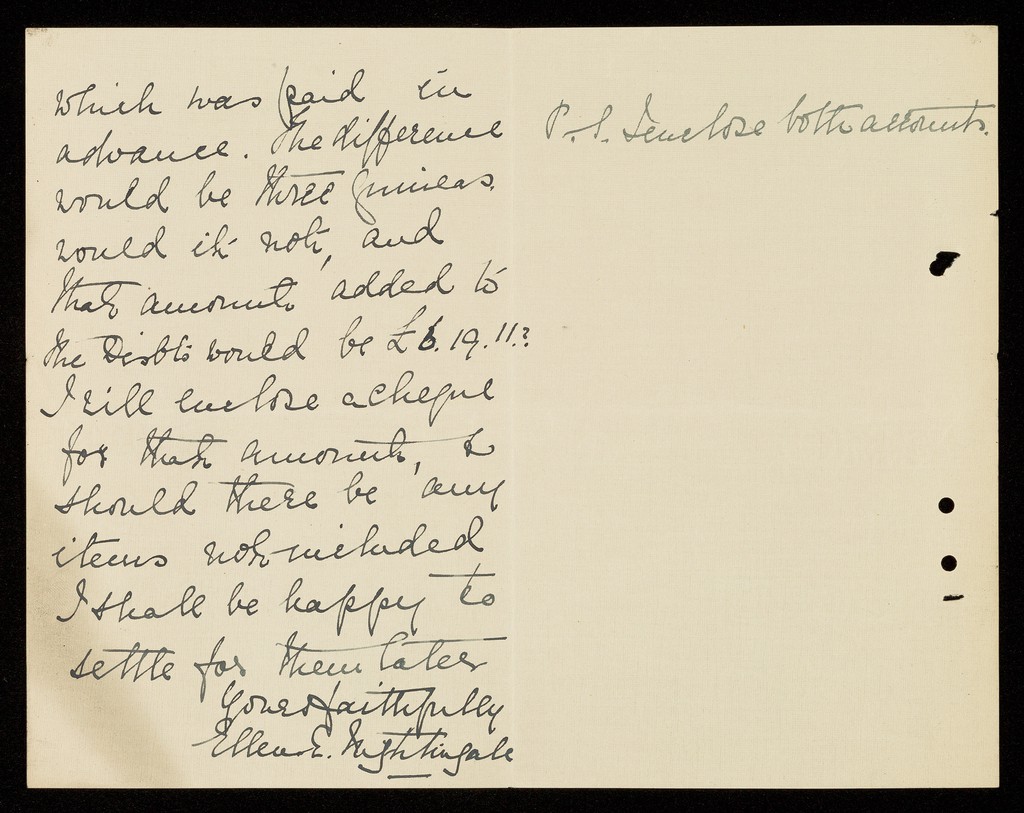 which was paid in
advance. The difference
would be three guineas
would it not, and
that amount added to
the Disbts would be £6.19.11.?
I will enclose a cheque
for that amount, &
should there be any
items not included
I shall be happy to
settle for them later
Yours faithfully
Ellen E. Nightingale
P.S. I enclose both accounts.